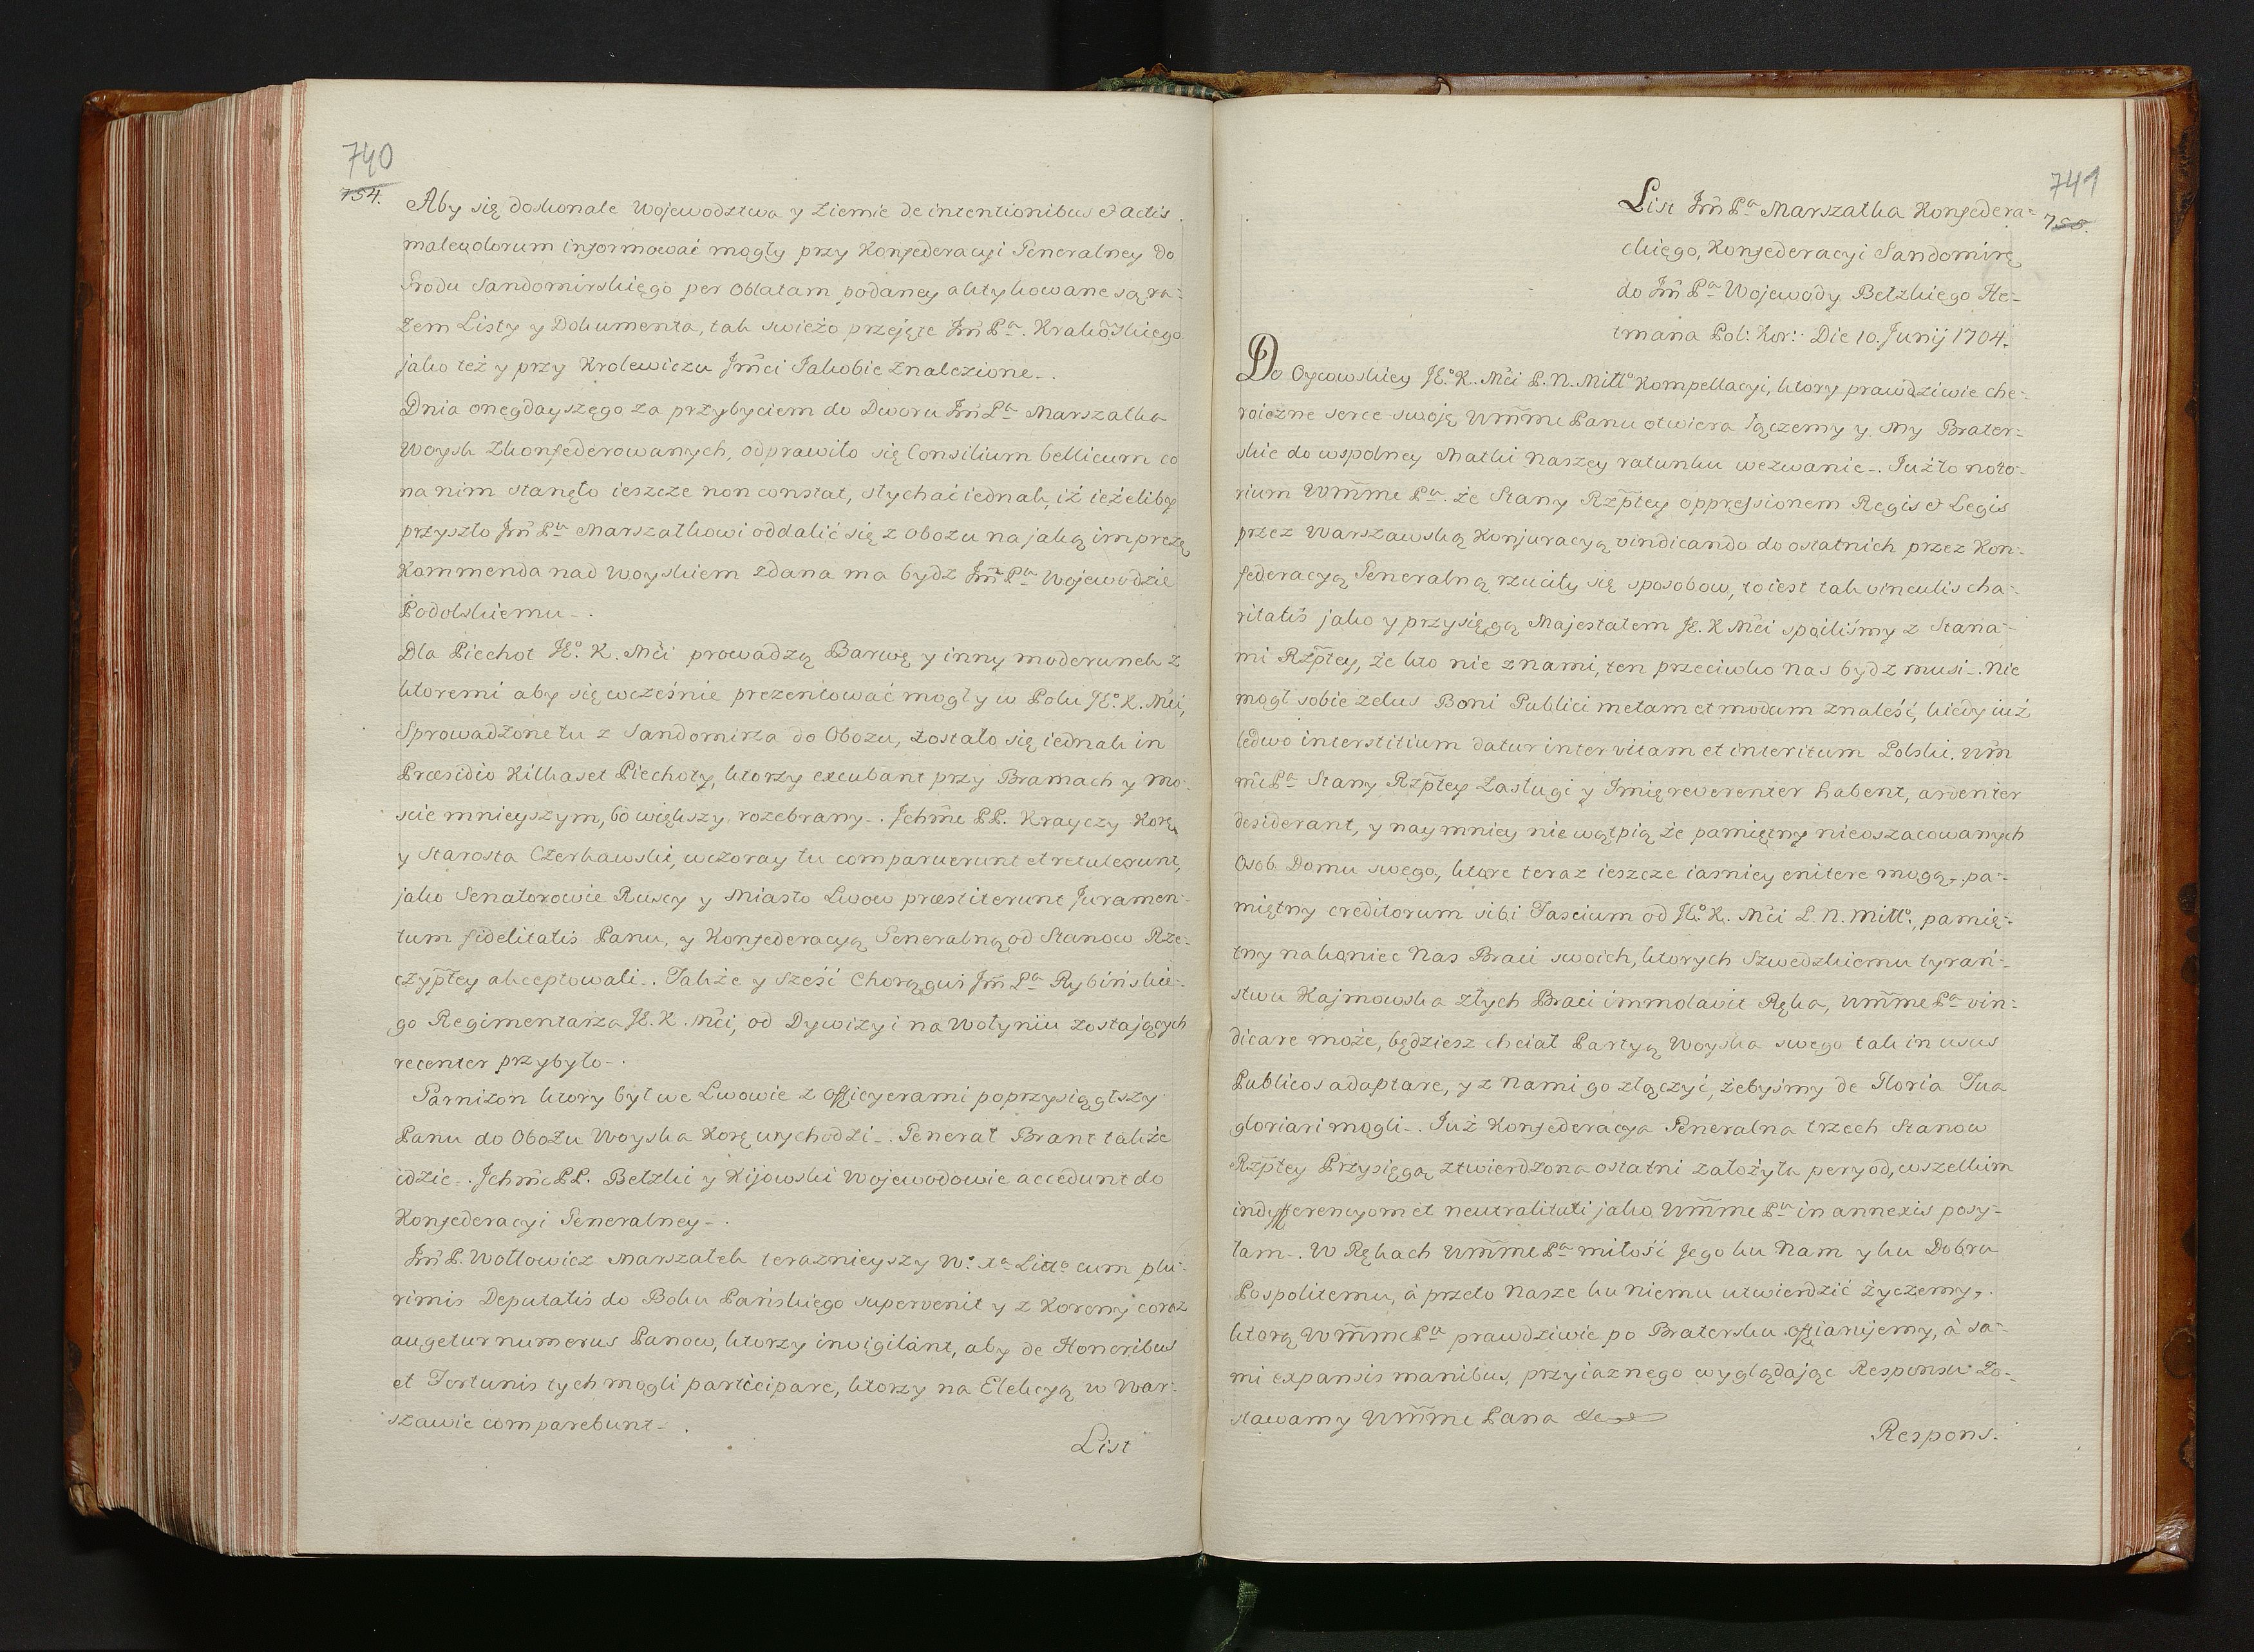 740
754.
Aby się doskonale Wojewodztwa y Ziemie de intentionibus et actis
malevolorum informować mogły przy Konfederacyi Generalney do
Grodu Sandomirskięgo per Oblatam podaney aktykowane są ra-
zem Listy y Dokumenta, tak swieżo przejęte Jm̃ Pa. Krakõskiego
jako też y przy Krolewiczu Jm̃ci Jakobie znalezione.
Dnia onegdayszęgo za przybyciem do Dworu Jm̃ Pa Marszałka
Woysk Zkonfederowanych, odprawiło się Consilium bellicum co
na nim stanęło ieszcze non constat, słychać iednak, iż ieżeliby
przyszło Jm̃ Pu Marszałkowi oddalić się z Obozu na jaką imprezę
Kommenda nad Woyskiem zdana ma bydz Jm̃ Pu Wojewodzie
Podolskiemu.
Dla Piechot JEo. K. Mci prowadzą Barwę y inny moderunek z
ktoremi aby się wcześnie prezentować mogły w Polu JEo. K. Mci,
Sprowadzone tu z Sandomirza do Obozu, zostało się iednak in
Præsidio Kilkaset Piechoty, ktorzy excubant przy Bramach y mo-
scie mnieyszym, bo większy rozebrany. Jchm̃c PP. Krayczy Korę
y Starosta Czerkawski, wczoray tu comparuerunt et retulerunt,
jako Senatorowie Ruscy y Miasto Lwow præstiterunt Juramen-
tum fidelitatis Panu, y Konfederacyą Generalną od Stanow Rze-
czyp̃tey akceptowali. Także y sześć Chorągwi Jm̃ Pa Rybińskie-
go Regimentarza JE. K. Mci, od Dywizyi na Wołyniu zostających
recenter przybyło.
Garnizon ktory był we Lwowie z Officyerami poprzysiągłszy
Panu do Obozu Woyska Korę wychodzi. Generał Brant także
idzie. Jchm̃c PP. Bełzki y Kijowski Wojewodowie accedunt do
Konfederacyi Generalney.
Jm̃ P. Wołłowicz Marszałek teraznieyszy Wo. Xa Litto cum plu-
rimis Deputatis do Boku Pańskiego supervenit y z Korony coraz
augetur numerus Panow, ktorzy invigilant, aby de Honoribus
et Fortunis tych mogli participare, ktorzy na Elekcyą w War-
szawie comparebunt.
List
741
755.
List Jm̃ Pa Marszałka Konfedera-
ckięgo, Konfederacyi Sandomirę
do Jm̃ Pa Wojewody Bełzkięgo He-
tmana Pol: Kor: Die 10. Junij 1704.
Do Oycowskiey JEo. K. Mci P. N. Miłło Kompellacyi, ktory prawdziwie che-
roiczne serce swoję Wm̃mu Panu otwiera łączemy y my Brater-
skie do wspolney Matki naszęy ratunku wezwanie. Już to noto-
rium Wm̃me Pu. że Stany Rzp̃tey oppressionem Regis et Legis
przez Warszawską Konjuracyą vindicando do ostatnich przez Kon-
federacyą Generalną rzuciły się sposobow, to iest tak vinculis cha-
ritatis jako y przysięgą Majestatem JE. K Mci spoiliśmy z Stana-
mi Rzp̃tey, że kto nie z nami, ten przeciwko nas bydz musi. Nie
mogł sobie zelus Boni Publici metam et modum znaleść, kiedy iuż
ledwo interstitium datur inter vitam et interitum Polski. Wm̃
m̃e Pa Stany Rzp̃tey Zasługi y Jmię reverenter habent, ardenter
desiderant, y naymniey nie wątpią, że pamiętny nieoszacowanych
Osob Domu swego, ktore teraz ieszcze iasniey enitere mogą, pa-
miętny creditorum sibi Fascium od JEo. K. Mci P. N. Miłło., pamię-
tny nakoniec Nas Braci swoich, ktorych Szwedzkiemu tyrań-
stwu Kajmowska złych Braci immolavit Ręka, Wm̃me Pa vin-
dicare może, będziesz chciał Partyą Woyska swego tak in usus
Publicos adaptare, y z Nami go złączyć, żebyśmy de Gloria Tua
gloriari mogli. Już Konfederacya Generalna trzech Stanow
Rzp̃tey Przysięgą ztwierdzona ostatni założyła peryod, wszelkim
indyfferencyom et neutralitati jako Wm̃me Pu in annexis posy-
łam. W Rękach Wm̃me Pa miłość Jego ku Nam y ku Dobru
Pospolitemu, à przeto Nasze ku niemu utwierdzić życzemy,
ktorą Wm̃me Pu prawdziwie po Bratersku offiarujemy, à sa-
mi expansis manibus, przyiaznego wyglądając Responsu zo-
stawamy Wm̃mu Pana &c
Respons.